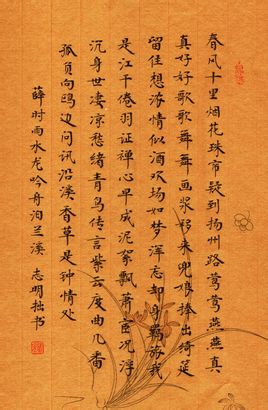 春风十里烟花珠帘疑到扬州路莺莺燕燕真
真好好歌歌舞舞画桨移来兜娘捧出绮筵
留住想浓情似酒欢场如梦浑忘却身羁旅我
是江干倦羽证禅心早成泥絮飘萧宦况浮
沉身世凄凉愁绪青鸟传言紫云度曲几番
孤负向鸥边问讯沿溪香草是钟情处
薛时雨水龙吟舟泊兰溪 志明拙书